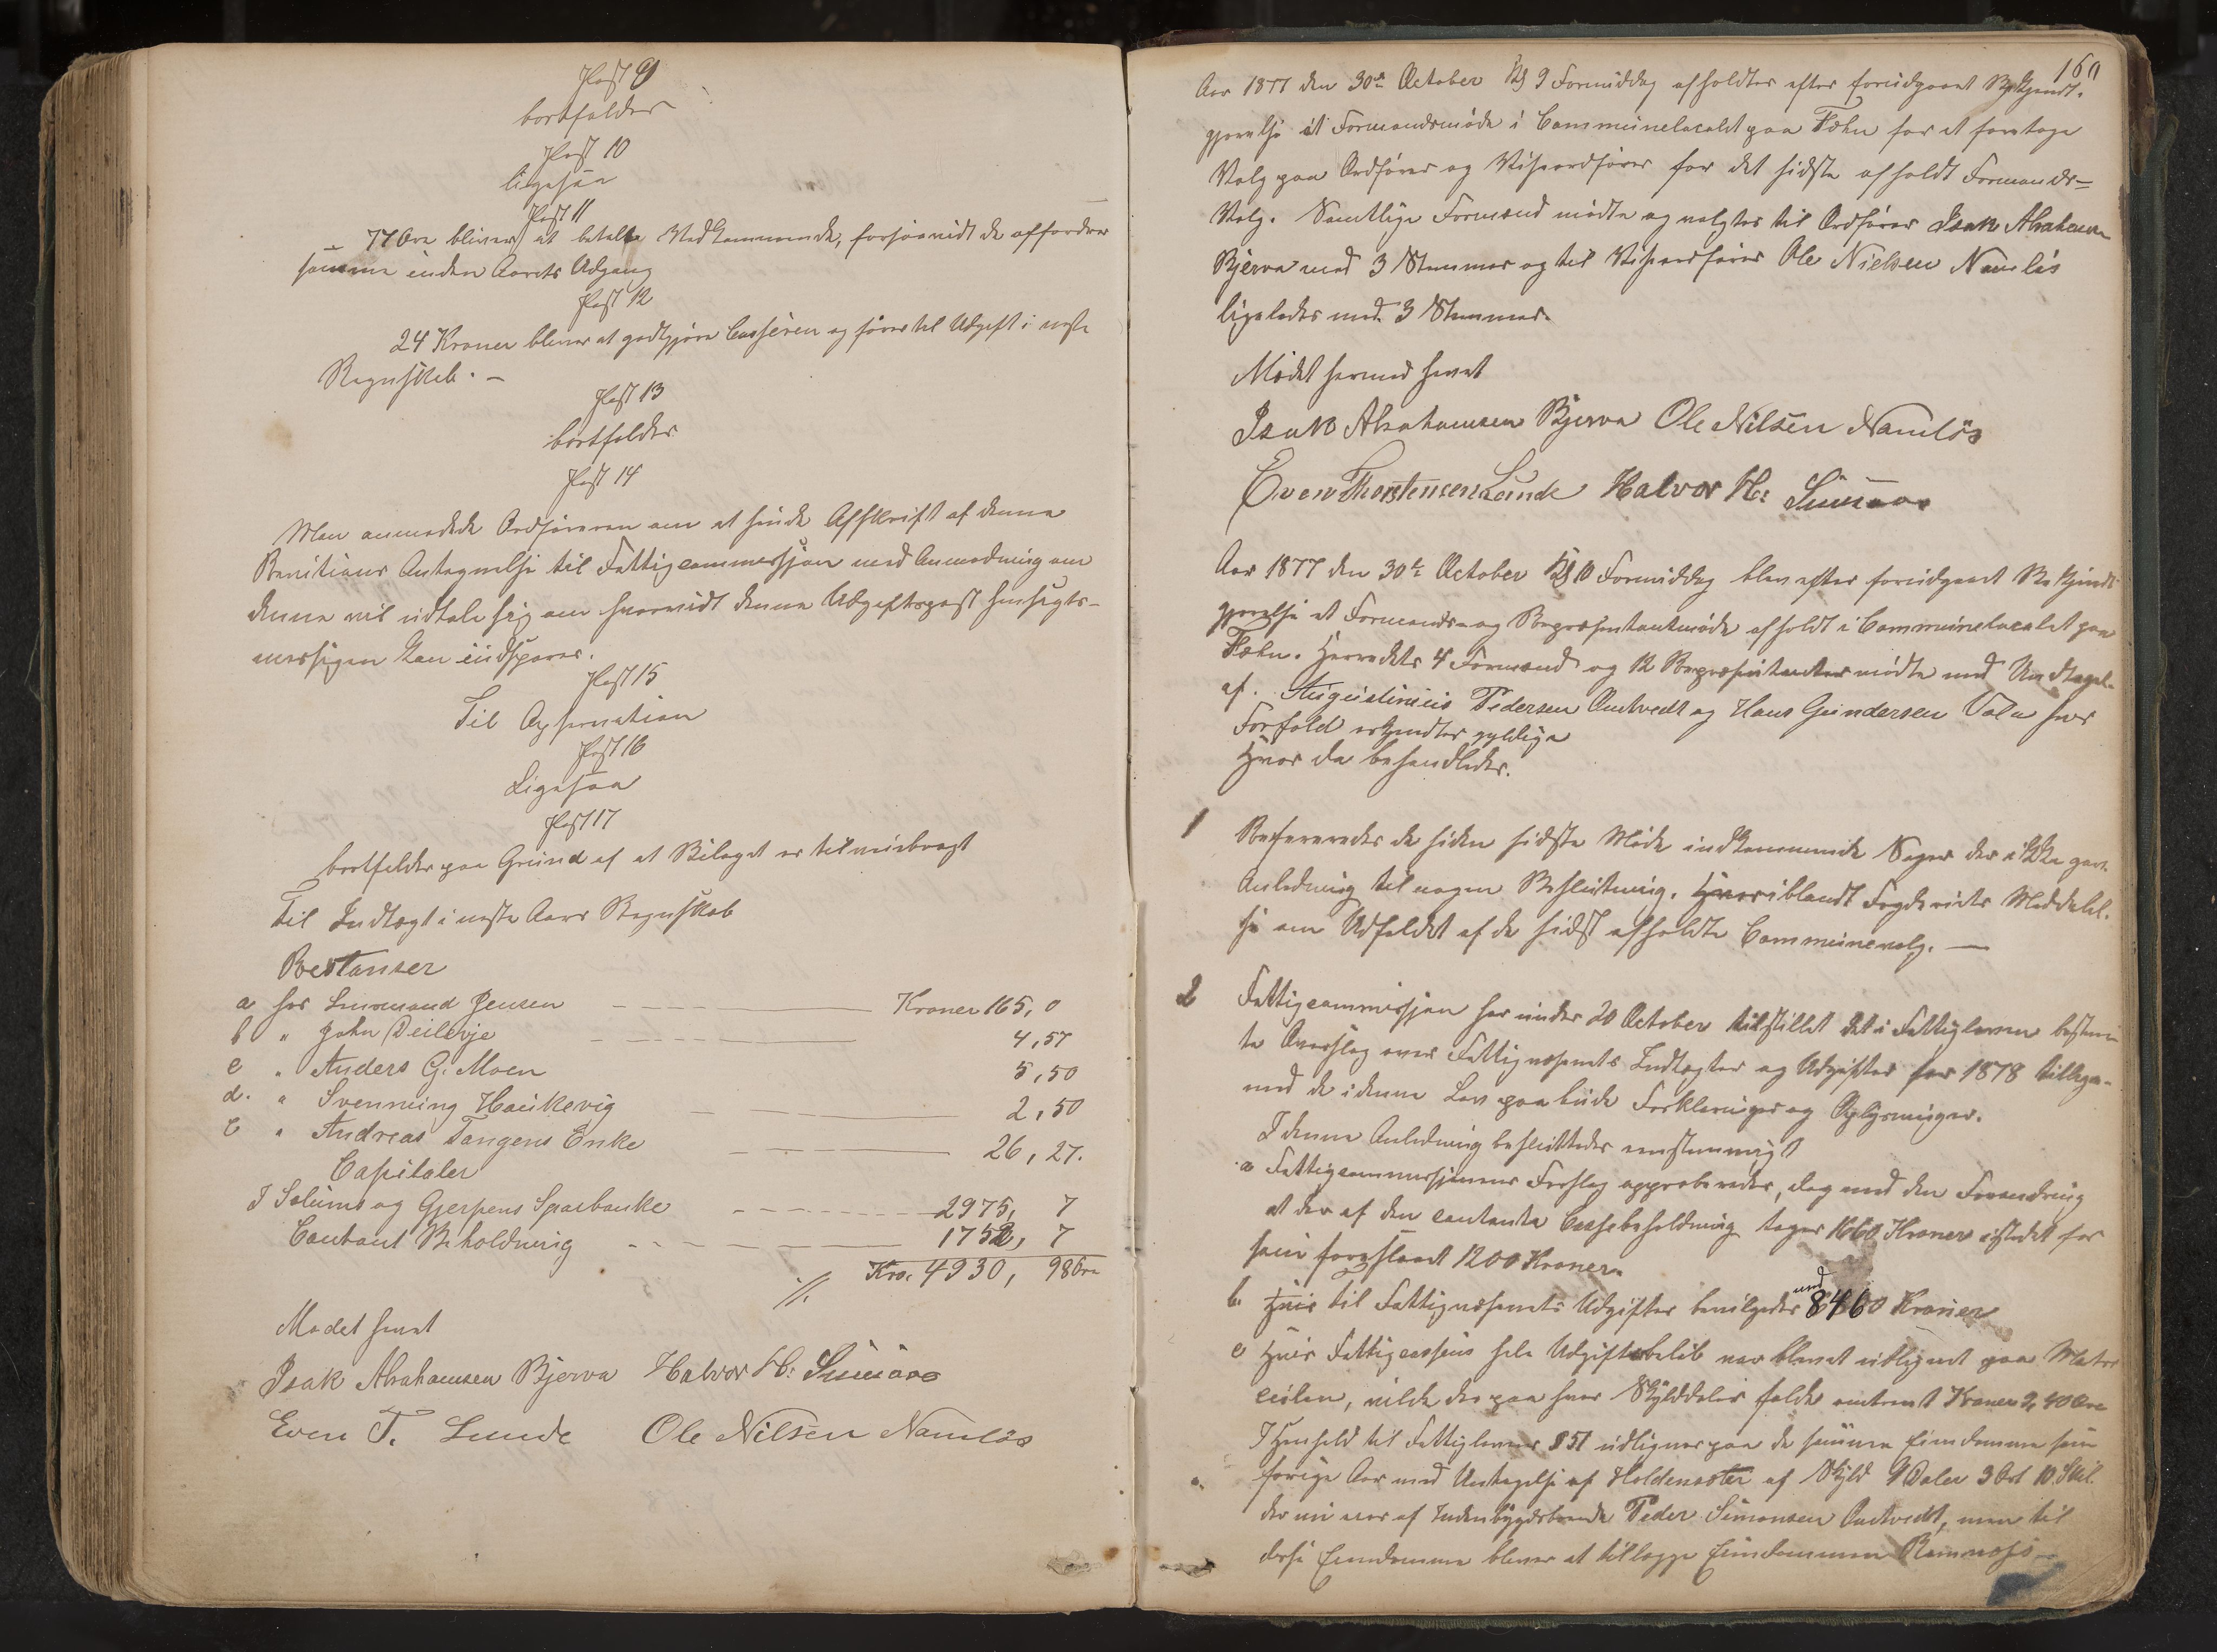 Post 9
bortfalder
Post 10
ligesaa
Post 11
77 Øre bliver at betale Vedkommende, forsaavidt de affordrer
samme inden Aarets Udgang
Post 12
24 Kroner bliver at godtgjøre Casseren og føres til Udgift i neste
Regnskab. –
Post 13
bortfalder
Post 14
Man anmodede Ordføreren om at sende Afskrift af denne
Revisions Antegnelse til Fattigcommissjon med Anmodning om
denne vil udtale sig om hvorvidt denne Udgiftspost hensigts-
messigen kan indspares.
Post 15
Til Observation
Post 16
Ligesaa
Post 17
bortfalder paa Grund af at Bilaget er tilveiebragt
Til Indtægt i neste Aars Regnskab
Restanser
a hos Lensmand Jensen Kroner 165, 0
b " John Deilevje 4,57
c " Anders G. Moen 5,50
d. " Svenning Haukevig 2,50
e " Andreas Tangens Enke 26,27.
Capitaler
I Solums og Gjerpens Sparbanke 2975, 7
Contant Beholdning 1752, 7
Kro. 4930, 98 Øre
Mødet hevet
Isak Abrahamsen Bjerva Halvor H:
Even T. Lunde Ole Nilsen Namløs
160
Aar 1877 den 30te October Kl 9 Formiddag afholdtes efter forudgaaet Bekjendt-
gjørelse et Formandsmøde i Communelocalet paa Fæhn for at foretage
Valg paa Ordfører og Viseordfører for det sidste afholdt Formands-
Valg. Samtlige Formænd mødte og valgtes til Ordfører Isak Abrahamsen
Bjerva med 3 Stemmer og til Viseordfører Ole Nielsen Namløs
ligeledes med 3 Stemmer.
Mødet hermed hevet
Isak Abrahamsen Bjerva Ole Nilsen Namløs
Even Thorstensen Lunde Halvor H:
Aar 1877 den 30te October Kl 10 Formiddag blev efter forudgaaet Bekjendt
gjørelse et Formands- og Repræsentantmøde afholdt i Communelocalet paa
Fæhn. Herredets 4 Formænd og 12 Repræsentanter mødte med Undtagel.
af. Augustinius Pedersen Omtvedt og Hans Gundersen Vala hvis
Forfald erkjendtes gyldige
Hvor da behandledes.
1 Refereredes de siden sidste Møde indkommende Sager der ikke gave
Anledning til nogen Beslutning. Hvoriblandt Fogderiets Meddelel-
se om Udfaldet af de sidst afholdte Communevalg. —
2 Fattigcommissjon har under 20 October tilstillet det i Fattigloven bestem
te Overslag over Fattigvæsenets Indtægter og Udgifter for 1878 tillige-
med de i denne Lov paabudte Forklaringer og Oplysninger.
I denne Anledning besluttedes enstemmigt
a Fattigcommissjonens Forslag approberedes, dog med den Forandring
at der af den contante Cassebeholdning tages 1660 Kroner istedet for
som foreslaaet 1200 Kroner.
b. Hvis til Fattigvæsenets Udgifter bevilgedes med 8460 Kroner
c Hvis Fattigcassens hele Udgiftsbeløb var blevet utlignet paa Matri
culen, vilde der paa hver Skylddaler falde omtrent Kroner 9,40 Øre
I Henhold til Fattigloven § 51 udlignes paa de samme Eiendomme som
forige Aar med Untagelse af Holdenseter af Skyld 9 Daler 3 Ort 10 Skil.
der nu eies af Indenbygdsboende Peder Simonsen Omtvedt, men til
disse Eiendomme bliver at tillægge Eiendommen